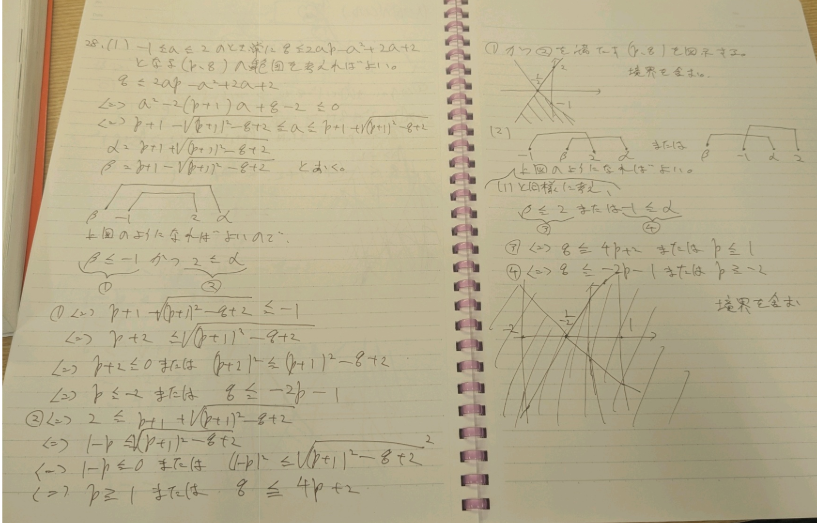 28.(1) -1≦a≦2のとき常にq≦2ap-a²+2a+2
となる(p,q)の範囲を考えればよい。
q≦2ap-a²+2a+2
<=> a²-2(p+1)a+q-2≦0
<=> p+1-√(p+1)²-q+2≦a≦p+1+√(p+1)²-q+2
α=p+1+√(p+1)²-q+2
β=p+1-√(p+1)²-q+2 とおく。
β -1 2 α
上図のようになればよいので、
β≦-1 かつ 2≦α
① ②
①<=> p+1-√(p+1)²-q+2≦-1
<=> p+2≦√(p+1)²-q+2
<=> p+2≦0 または (p+2)²≦(p+1)²-q+2
<=> p≦-2 または q≦-2p-1
②<=> 2≦p+1+√(p+1)²-q+2
<=> 1-p≦√(p+1)²-q+2
<=> 1-p≦0 または (1-p)²≦√(p+1)²-q+2²
<=> p≧1 または q≦4p+2
①かつ②を満たす(p,q)を図示する。
境界を含む。
-1/2 2
-1
(2)
-1 β 2 α または β -1 α 2
上図のようになればよい。
(1)と同様に考え、
β≦2 または -1≦α
③ ④
③<=> q≦4p+2 または p≦1
④<=> q≦-2p-1 または p≧-2
境界を含む
-2 -1/2 1